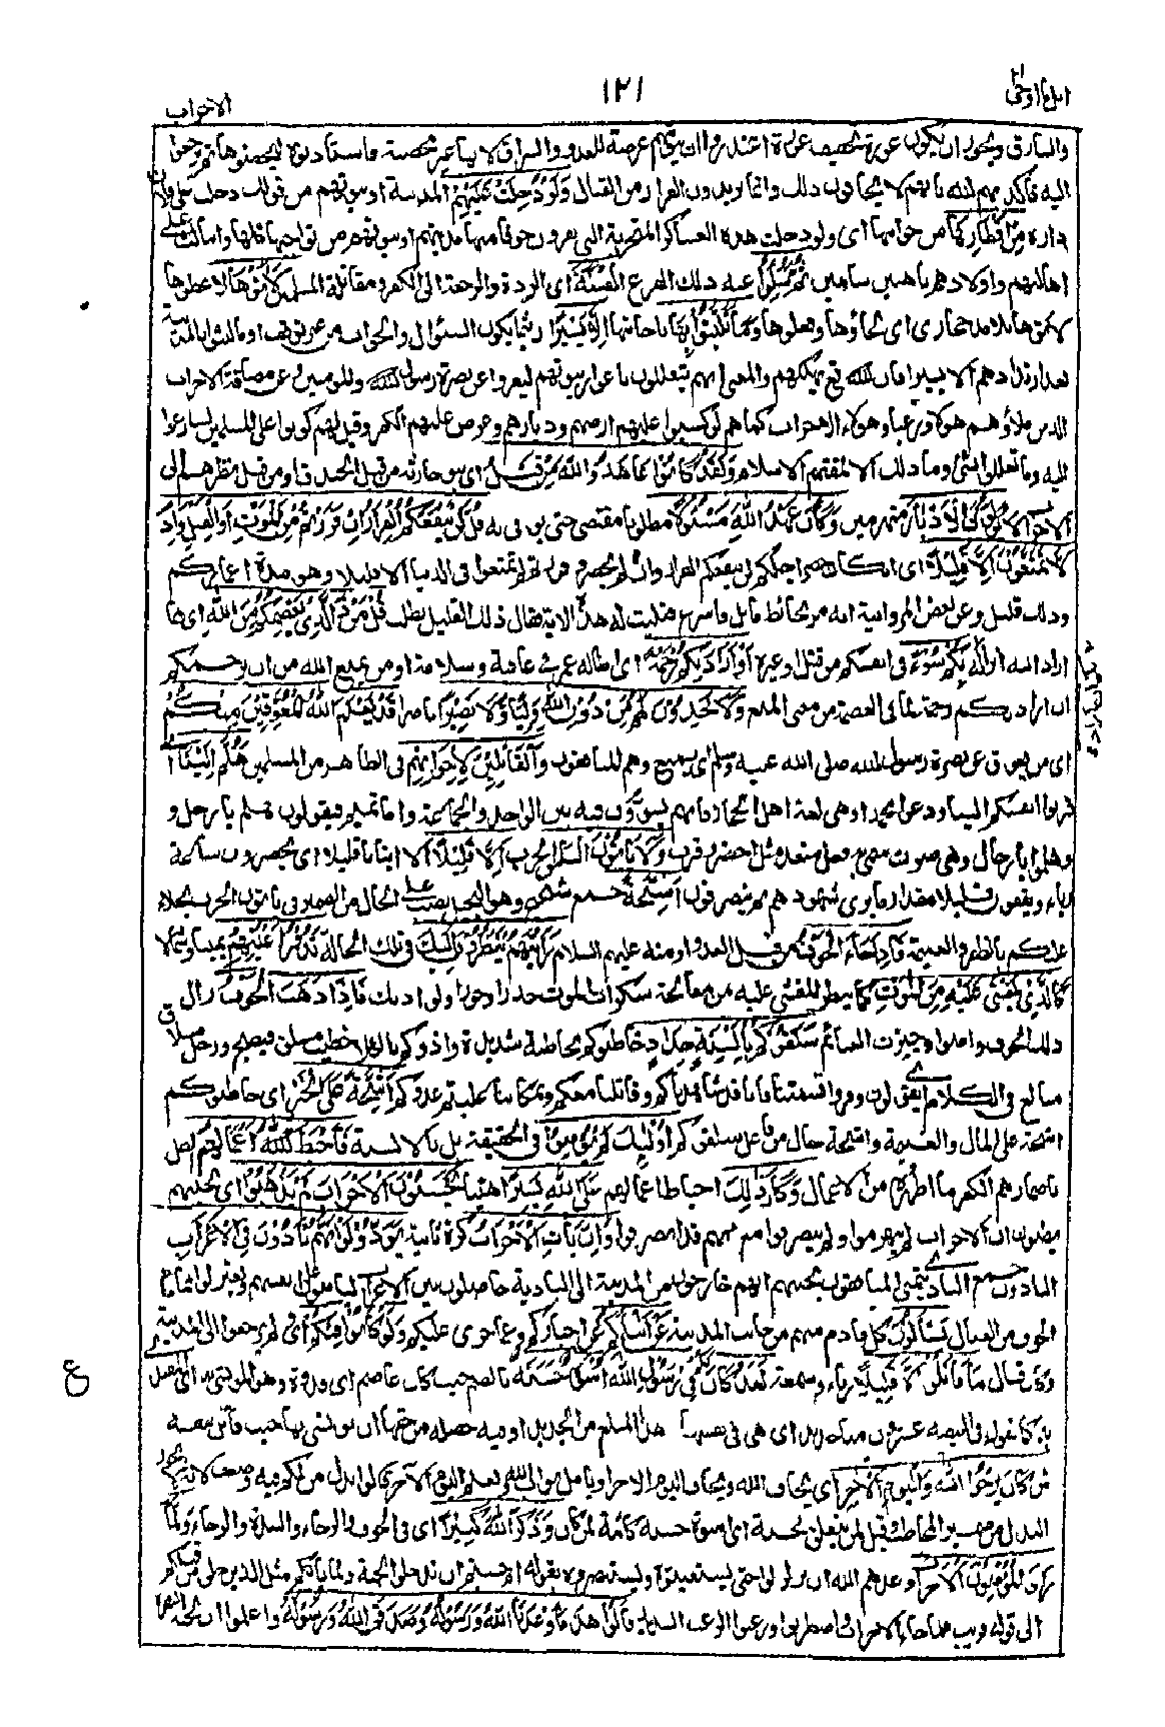 ١٢١
الاحزاب
والسارق ويجوز ان يكون عورة تخفيف عورة اعتذروا ان بيوتهم عرضة للعدو والسراق لانها غير محصنة فاستأذنوه ليحصنوها ثم يرجعوا
اليه فأكذبهم الله بانهم لا يخافون ذلك وانما يريدون الفرار من القتال وَلَوْ دُخِلَتْ عَلَيْهِمْ المدينة او بيوتهم من قولك دخلت على فلان
داره مِنْ أَقْطَارِهَا من جوانبها اى ولو دخلت هذه العساكر المتحزبة التى يفرون خوفا منها مدينتهم او بيوتهم من نواحيها كلها وانثالت على
اهاليهم واولادهم ناهبين سابين ثُمَّ سُئِلُوا عند ذلك الفزع الْفِتْنَةَ اى الردة والرجعة الى الكفر ومقاتلة المسلمين لَآتَوْهَا لاعطوها
اى لجاؤها وفعلوها وَمَا تَلَبَّثُوا بِهَا باجابتها إِلَّا يَسِيرًا ريثما يكون السؤال والجواب من غير توقف او ما لبثوا بالمدينة
بعد ارتدادهم الا يسيرا فان الله تع يهلكهم والمعنى انهم يتعللون باعوار بيوتهم ليفروا عن نصرة رسول الله والمؤمنين وعن مصافة الاحزاب
الذين ملاؤهم هولا ورعبا وهؤلاء الاحزاب كما هم لو كبسوا عليهم ارضهم وديارهم وعرض عليهم الكفر وقيل لهم كونوا على المسلمين لسارعوا
اليه وما تعللوا بشئ وما ذلك الا لمقتهم الاسلام وَلَقَدْ كَانُوا عَاهَدُوا اللَّهَ مِنْ قَبْلُ اى بنو حارثة من قبل الخندق او من قبل نظرهم الى
الاحزاب لَا يُوَلُّونَ الْأَدْبَارَ منهزمين وَكَانَ عَهْدُ اللَّهِ مَسْئُولًا مطلوبا مقتضى حتى يوفى به قُلْ لَنْ يَنْفَعَكُمُ الْفِرَارُ إِنْ فَرَرْتُمْ مِنَ الْمَوْتِ أَوِ الْقَتْلِ وَإِذًا
لَا تُمَتَّعُونَ إِلَّا قَلِيلًا اى ان كان حضر اجلكم لن ينفعكم الفرار وان لم يحضر وفررتم لم تمتعوا فى الدنيا الا قليلا وهو مدة اعماركم
وذلك قليل وعن بعض المروانية انه مر بحائط مائل فاسرع فتليت له هذه الاية فقال ذلك القليل نطلب قُلْ مَنْ ذَا الَّذِي يَعْصِمُكُمْ مِنَ اللَّهِ اى مما
اراد الله ان اراد بِكُمْ سُوءًا فى انفسكم من قتل او غيره أَوْ أَرَادَ بِكُمْ رَحْمَةً اى اطالة عمر فى عافية وسلامة او من يمنع الله من ان يرحمكم
ان اراد بكم رحمة لما فى العصمة من معنى المنع وَلَا يَجِدُونَ لَهُمْ مِنْ دُونِ اللَّهِ وَلِيًّا وَلَا نَصِيرًا ناصرا قَدْ يَعْلَمُ اللَّهُ الْمُعَوِّقِينَ مِنْكُمْ
اى من يعوق عن نصرة رسول الله صلى الله عليه وسلم اى يمنع وهم المنافقون وَالْقَائِلِينَ لِإِخْوَانِهِمْ فى الظاهر من المسلمين هَلُمَّ إِلَيْنَا اى
قربوا انفسكم الينا ودعوا محمدا وهى لغة اهل الحجاز فانهم يسوون فيه بين الواحد والجماعة واما تميم فيقولون هلم يا رجل و
وهلموا يا رجال وهى صوت سمى به فعل متعد مثل احضر وقرب وَلَا يَأْتُونَ الْبَأْسَ الحرب إِلَّا قَلِيلًا الا اتيانا قليلا اى يحضرون ساعة
رياء ويقفون قليلا مقدار ما يرى شهودهم ثم ينصرفون أَشِحَّةً جمع شحيح وهو البخيل نصب على الحال من الضمير فى يأتون الحرب بخلاء
عليكم بالظفر والغنيمة فَإِذَا جَاءَ الْخَوْفُ من قبل العدو او منه عليه السلام رَأَيْتَهُمْ يَنْظُرُونَ إِلَيْكَ فى تلك الحالة تَدُورُ أَعْيُنُهُمْ يمينا وشمالا
كَالَّذِي يُغْشَى عَلَيْهِ مِنَ الْمَوْتِ كما ينظر المغشى عليه من معالجة سكرات الموت حذرا وخورا ولواذا بك فَإِذَا ذَهَبَ الْخَوْفُ زال
ذلك الخوف وامنوا وحيزت الغنائم سَلَقُوكُمْ بِأَلْسِنَةٍ حِدَادٍ خاطبوكم مخاطبة شديدة واذوكم بالكلام خطيب مسلق فصيح ورجل مسلاق
مبالغ فى الكلام يقولون وفروا قسمتنا فانا قد شاهدناكم وقاتلنا معكم وبمكاننا غلبتم عدوكم أَشِحَّةً عَلَى الْخَيْرِ اى خاطبوكم
اشحة على المال والغنيمة واشحة حال من فاعل سلقوكم أُولَئِكَ لَمْ يُؤْمِنُوا فى الحقيقة بل بالالسنة فَأَحْبَطَ اللَّهُ أَعْمَالَهُمْ ابطل
باضمارهم الكفر ما اظهروه من الاعمال وَكَانَ ذَلِكَ احباط اعمالهم عَلَى اللَّهِ يَسِيرًا هينا يَحْسَبُونَ الْأَحْزَابَ لَمْ يَذْهَبُوا اى لجبنهم
يظنون ان الاحزاب لم ينهزموا ولم ينصرفوا مع انهم قد انصرفوا وَإِنْ يَأْتِ الْأَحْزَابُ كرة ثانية يَوَدُّوا لَوْ أَنَّهُمْ بَادُونَ فِي الْأَعْرَابِ
البادون جمع البادى يتمنى المنافقون لجبنهم انهم خارجون من المدينة الى البادية حاصلون بين الاعراب ليأمنوا على انفسهم ويعتزلوا مما فيه
الخوف من القتال يَسْأَلُونَ كل قادم منهم من جانب المدينة عَنْ أَنْبَائِكُمْ عن اخباركم وعما جرى عليكم وَلَوْ كَانُوا فِيكُمْ اى ولم يرجعوا الى المدينة
وكان قتال مَا قَاتَلُوا إِلَّا قَلِيلًا رياء وسمعة لَقَدْ كَانَ لَكُمْ فِي رَسُولِ اللَّهِ أُسْوَةٌ حَسَنَةٌ بالضم حيث كان عاصم اى قدوة وهو المؤتسى به اى المقتدى
به كما تقول فى البيضة عشرون منا حديد اى هى فى نفسها هذا المبلغ من الحديد او فيه خصلة من حقها ان يؤتسى بها حيث قاتل بنفسه
لِمَنْ كَانَ يَرْجُو اللَّهَ وَالْيَوْمَ الْآخِرَ اى يخاف الله ويخاف اليوم الاخر او يأمل ثواب الله ونعيم اليوم الآخر قالوا لمن بدل من لكم وفيه ضعف لانه لا يجوز
البدل من ضمير المخاطب وقيل لمن يتعلق بحسنة اى اسوة حسنة كائنة لمن كان وَذَكَرَ اللَّهَ كَثِيرًا اى فى الخوف والرجاء والشدة والرخاء وَلَمَّا
رَأَى الْمُؤْمِنُونَ الْأَحْزَابَ وعدهم الله ان يزلزلوا حتى يستغيثوا ويستنصروه بقوله ام حسبتم ان تدخلوا الجنة ولما يأتكم مثل الذين خلوا من قبلكم
الى قوله قريب فلما جاء الاحزاب واضطربوا ورعبوا الرعب الشديد قَالُوا هَذَا مَا وَعَدَنَا اللَّهُ وَرَسُولُهُ وَصَدَقَ اللَّهُ وَرَسُولُهُ وعلموا ان
ع